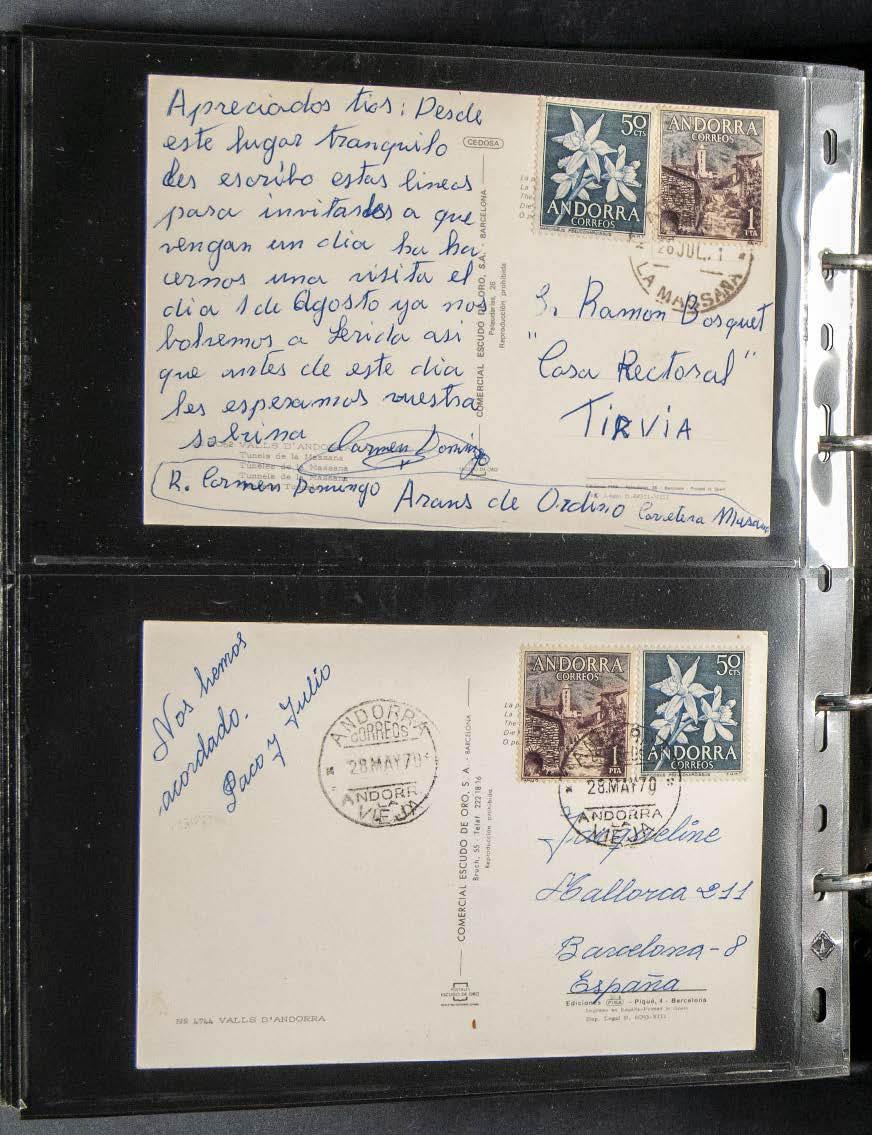 Apreciados tios: Desde
este lugar tranquilo
les escribo estas lineas
para invitarles a que
vengan un dia ha ha
cernos una visita el
dia 1 de Agosto ya nos
bolvemos a Lerida asi
que antes de este dia
les esperamos vuestra
sobrina Carmen Domingo
VALLS D'ANDORRA
Tunels de la Massana
Tuneles de la Massana
Tunnels de la Massana
R. Carmen Domingo Arans de Ordino Carretera
CEDOSA
COMERCIAL ESCUDO DE ORO, S.A. - BARCELONA
Palaudarias, 26
Reproducción prohibida
50 CTS
ANDORRA
CORREOS
ANDORRA
CORREOS
1
PTA
26 JUL.
LA MASSANA
S. Ramon Bosquet
"Casa Rectoral"
TIRVIA
Nos hemos
acordado.
Paco y Julio
ANDORRA
CORREOS
28.MAY70
ANDORRA
LA
VIEJA
COMERCIAL ESCUDO DE ORO, S. A. - BARCELONA
Bruch, 55 - Telef. 222 18 16
Reproducción prohibida
POSTALES
ESCUDO DE ORO
ANDORRA
CORREOS
1
PTA
50
CTS
ANDORRA
CORREOS
28.MAY70
ANDORRA
LA
VIEJA
Jacqueline
Mallorca 211
Barcelona-8
España
Ediciones FISA - Piqué, 4 - Barcelona
Nº 4744 VALLS D'ANDORRA